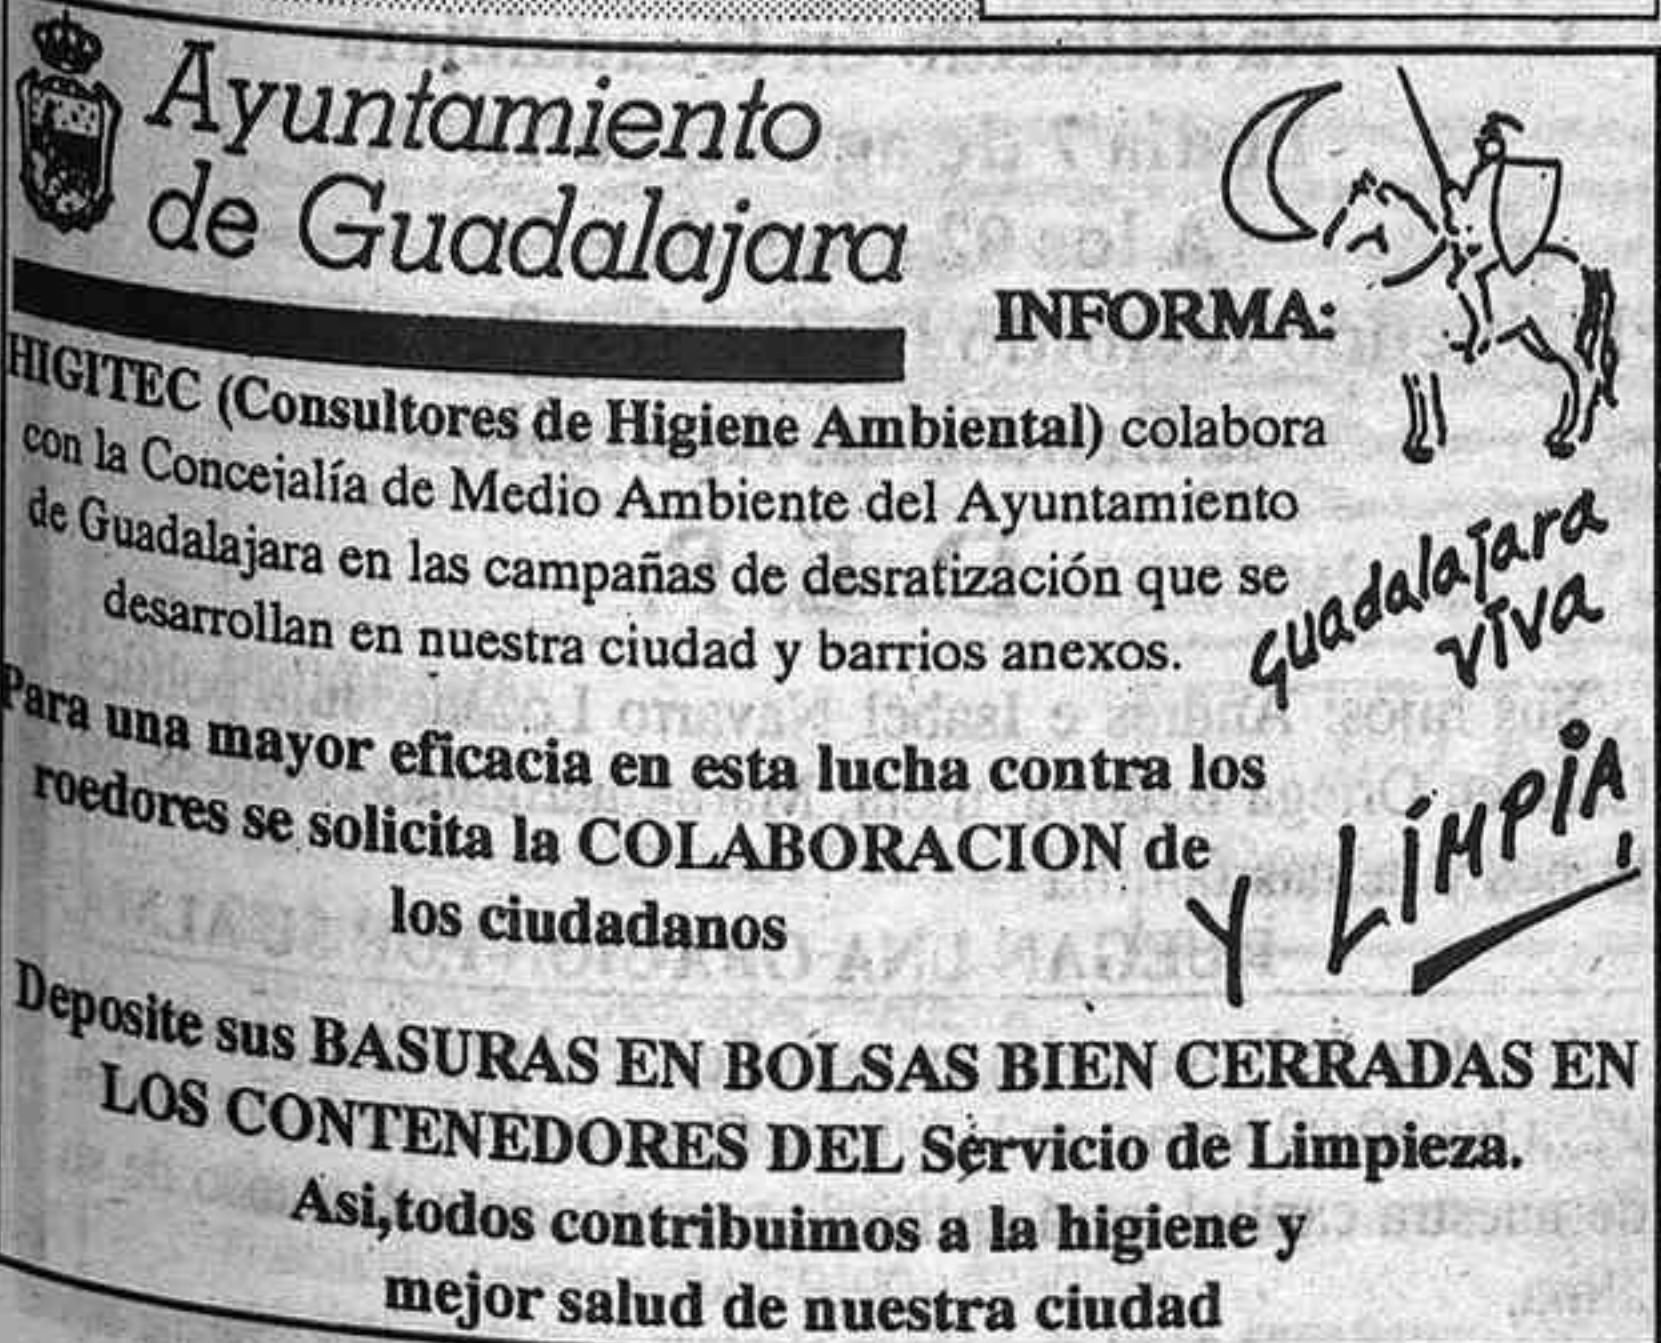 Ayuntamiento
de Guadalajara
INFORMA:
HIGITEC (Consultores de Higiene Ambiental) colabora
con la Concejalía de Medio Ambiente del Ayuntamiento
de Guadalajara en las campañas de desratización que se
desarrollan en nuestra ciudad y barrios anexos.
Guadalajara
viva
Y LIMPIA
Para una mayor eficacia en esta lucha contra los
roedores se solicita la COLABORACION de
los ciudadanos
Deposite sus BASURAS EN BOLSAS BIEN CERRADAS EN
LOS CONTENEDORES DEL Servicio de Limpieza.
Asi,todos contribuimos a la higiene y
mejor salud de nuestra ciudad